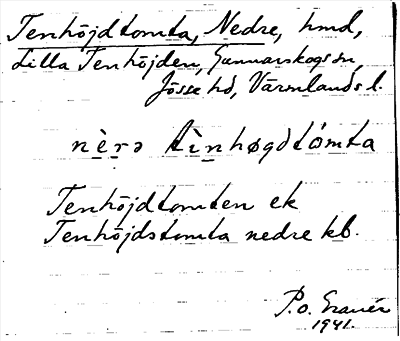 Tenhöjdtomta, Nedre, hmd,
Lilla Tenhöjden, Gunnarskogs sn,
Jösse hd, Värmlands l.
nèrə tìnhøgdtómta
Tenhöjdtomten ek
Tenhöjdstomta nedre kb.
P.O.
1941.